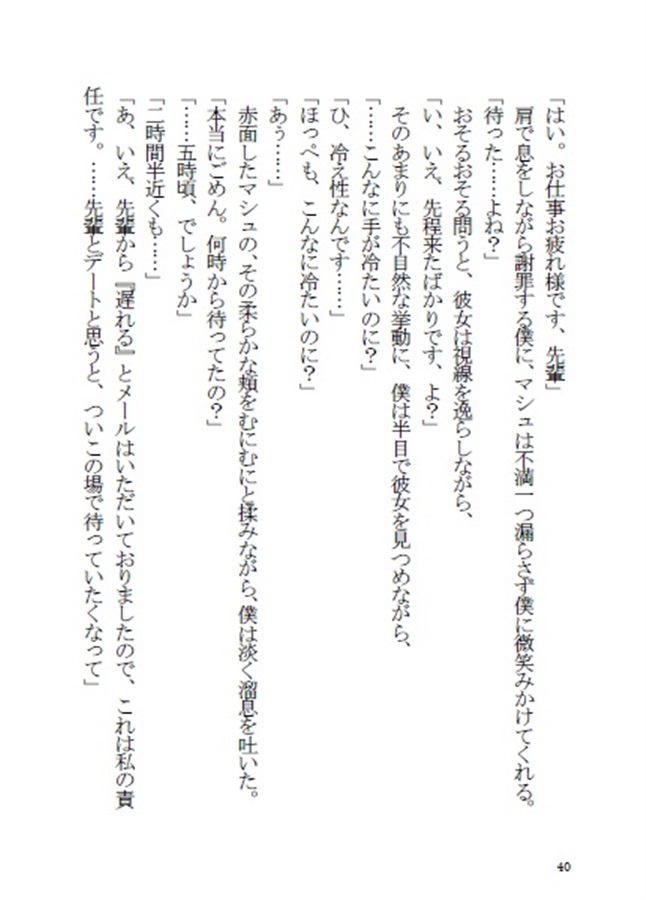 「はい。お仕事お疲れ様です、先輩」
肩で息をしながら謝罪する僕に、マシュは不満一つ漏らさず僕に微笑みかけてくれる。
「待った……よね？」
おそるおそる問うと、彼女は視線を逸らしながら、
「い、いえ、先程来たばかりです、よ？」
そのあまりにも不自然な挙動に、僕は半目で彼女を見つめながら、
「……こんなに手が冷たいのに？」
「ひ、冷え性なんです……」
「ほっぺも、こんなに冷たいのに？」
「あぅ……」
赤面したマシュの、その柔らかな頬をむにむにと揉みながら、僕は淡く溜息を吐いた。
「本当にごめん。何時から待ってたの？」
「……五時頃、でしょうか」
「二時間半近くも……」
「あ、いえ、先輩から『遅れる』とメールはいただいておりましたので、これは私の責
任です。……先輩とデートと思うと、ついこの場で待っていたくなって」
40